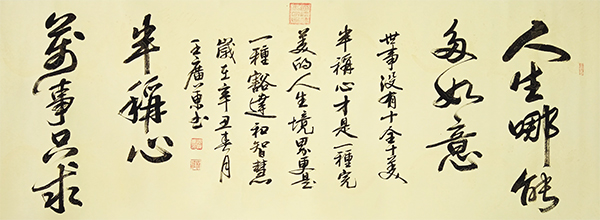 人生哪能
多如意
萬事只求
半稱心
世事没有十全十美
半稱心才是一種完
美的人生境界更是
一種豁達和智慧
歲在辛丑春月
王廣東书